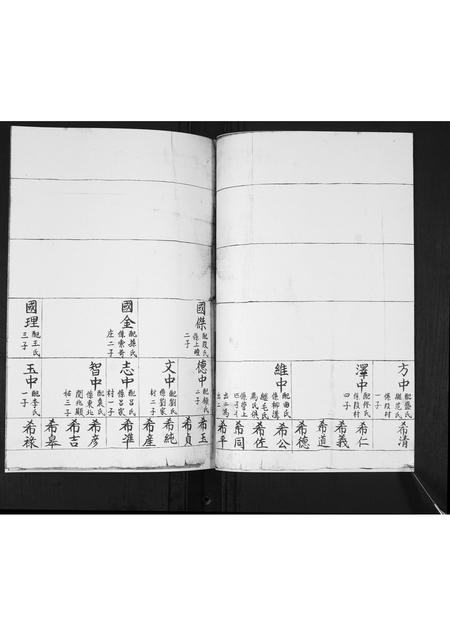 方中
配盛氏
繼范氏
係段村
一子
希清
澤中
配佟氏
係段村
四子
希仁
希義
希道
希德
維中
配曲氏
係柳溝
繼毛氏
馬氏俱
係營上
希公
希佐
希同
希平
國傑
配段氏
係上疃
二子
德中
配賴氏
二子
希玉
希貞
文中
配劉氏
係劉家
村二子
希純
希產
國金
配蔴氏
係索哥
庄二子
志中
配呂氏
係呂家
村一子
希準
智中
配袁氏
係東北
三子
希彥
希吉
希皋
國理
配王氏
三子
玉中
配李氏
一子
希祿